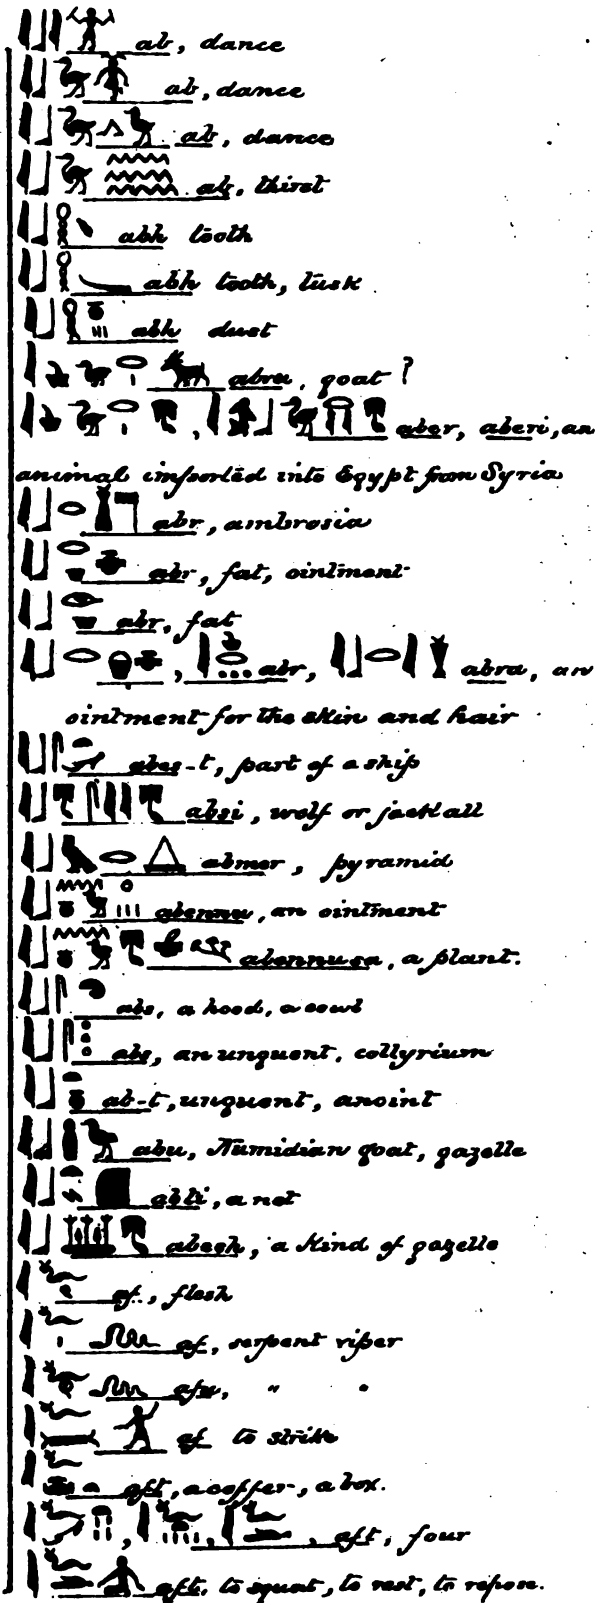 ab, dance
ab, dance
ab, dance
ab, thirst
abh tooth
abh tooth, tusk
abh dust
abru, goat?
, aber, aberi, an
animal imported into Egypt from Syria
abr, ambrosia
abr, fat, ointment
abr, fat
, abr, abra, an
ointment for the skin and hair
abes-t, part of a ship
absi, wolf or jackall
abmer, pyramid
abennu, an ointment
abennusa, a plant.
abs, a hood, a cowl
abs, an unguent, collyrium
ab-t, unguent, anoint
abu, Numidian goat, gazelle
abti, a net
abegh, a kind of gazelle
af, flesh
af, serpent viper
afu, " "
af to strike
aft, a coffer, a box.
, , , aft, four
aft, to squat, to rest, to repose.